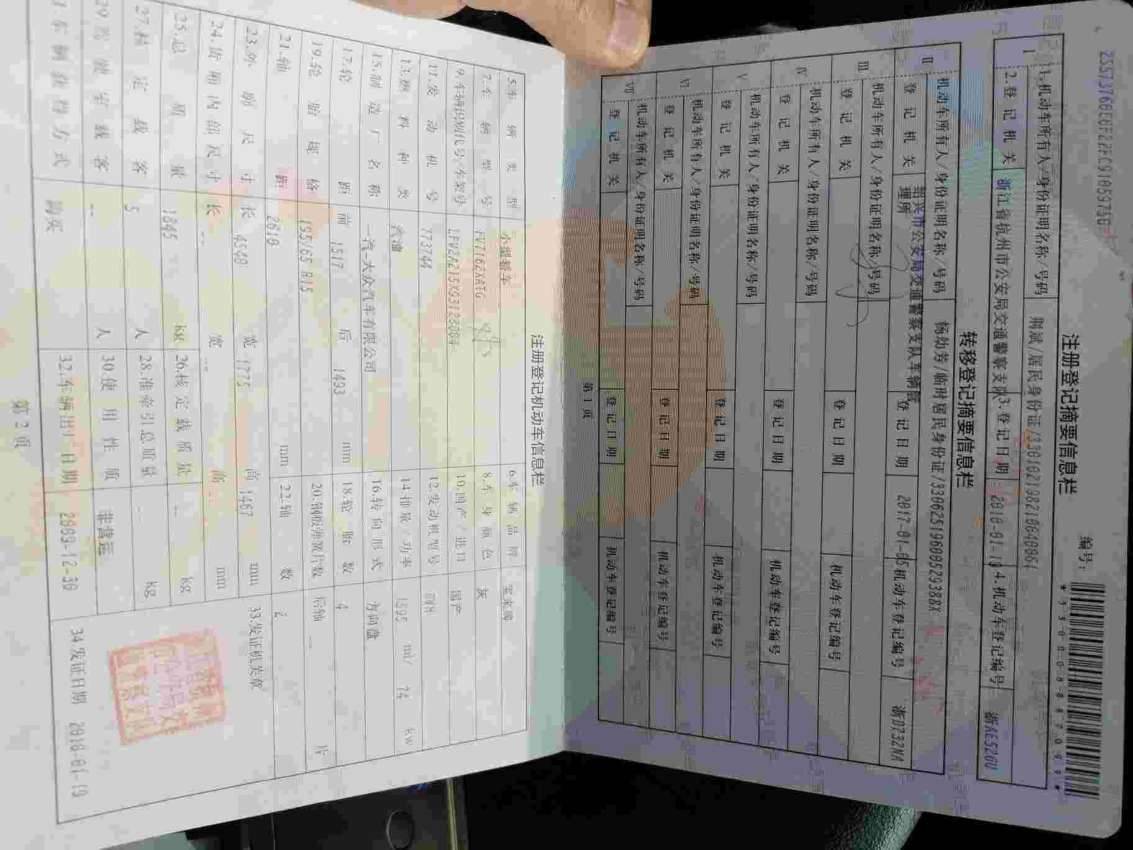 注册登记摘要信息栏
编号:
Ⅰ
1.机动车所有人/身份证明名称/号码
2.登记机关 浙江省杭州市公安局交通警察支队 3.登记日期 2010-01-19 4.机动车登记编号 浙AE526U
转移登记摘要信息栏
Ⅱ
机动车所有人/身份证明名称/号码
登记机关 绍兴市公安局交通警察支队车辆管理所 登记日期 2017-01-05 机动车登记编号 浙D732NA
Ⅲ
机动车所有人/身份证明名称/号码
登记机关 登记日期 机动车登记编号
Ⅳ
机动车所有人/身份证明名称/号码
登记机关 登记日期 机动车登记编号
Ⅴ
机动车所有人/身份证明名称/号码
登记机关 登记日期 机动车登记编号
Ⅵ
机动车所有人/身份证明名称/号码
登记机关 登记日期 机动车登记编号
Ⅶ
机动车所有人/身份证明名称/号码
登记机关 登记日期 机动车登记编号
第1页
注册登记机动车信息栏
5.车辆类型 小型轿车 6.车辆品牌 宝来牌
7.车辆型号 8.车身颜色 灰
9.车辆识别代号/车架号 10.国产/进口 国产
11.发动机号 773744 12.发动机型号
13.燃料种类 汽油 14.排量/功率 1595 ml/ 74 kw
15.制造厂名称 一汽-大众汽车有限公司 16.转向形式 方向盘
17.轮距 前 1517 后 1493 mm 18.轮胎数 4
19.轮胎规格 195/65 R15 20.钢板弹簧片数 后轴 -- 片
21.轴距 2610 mm 22.轴数 2
23.外廓尺寸 长 4540 宽 1775 高 1467 mm 33.发证机关章
24.货厢内部尺寸 长 -- 宽 -- 高 mm
25.总质量 1845 kg 26.核定载质量 -- kg
27.核定载客 5 人 28.准牵引总质量 -- kg
29.驾驶室载客 -- 人 30.使用性质 非营运
31.车辆获得方式 购买 32.车辆出厂日期 2009-12-30 34.发证日期 2010-01-19
第2页